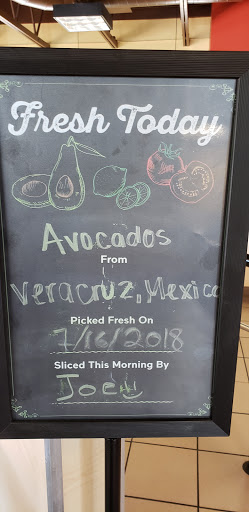 Fresh Today
Avocados
From
Veracruz, Mexico
Picked Fresh On
7/16/2018
Sliced This Morning By
Joe